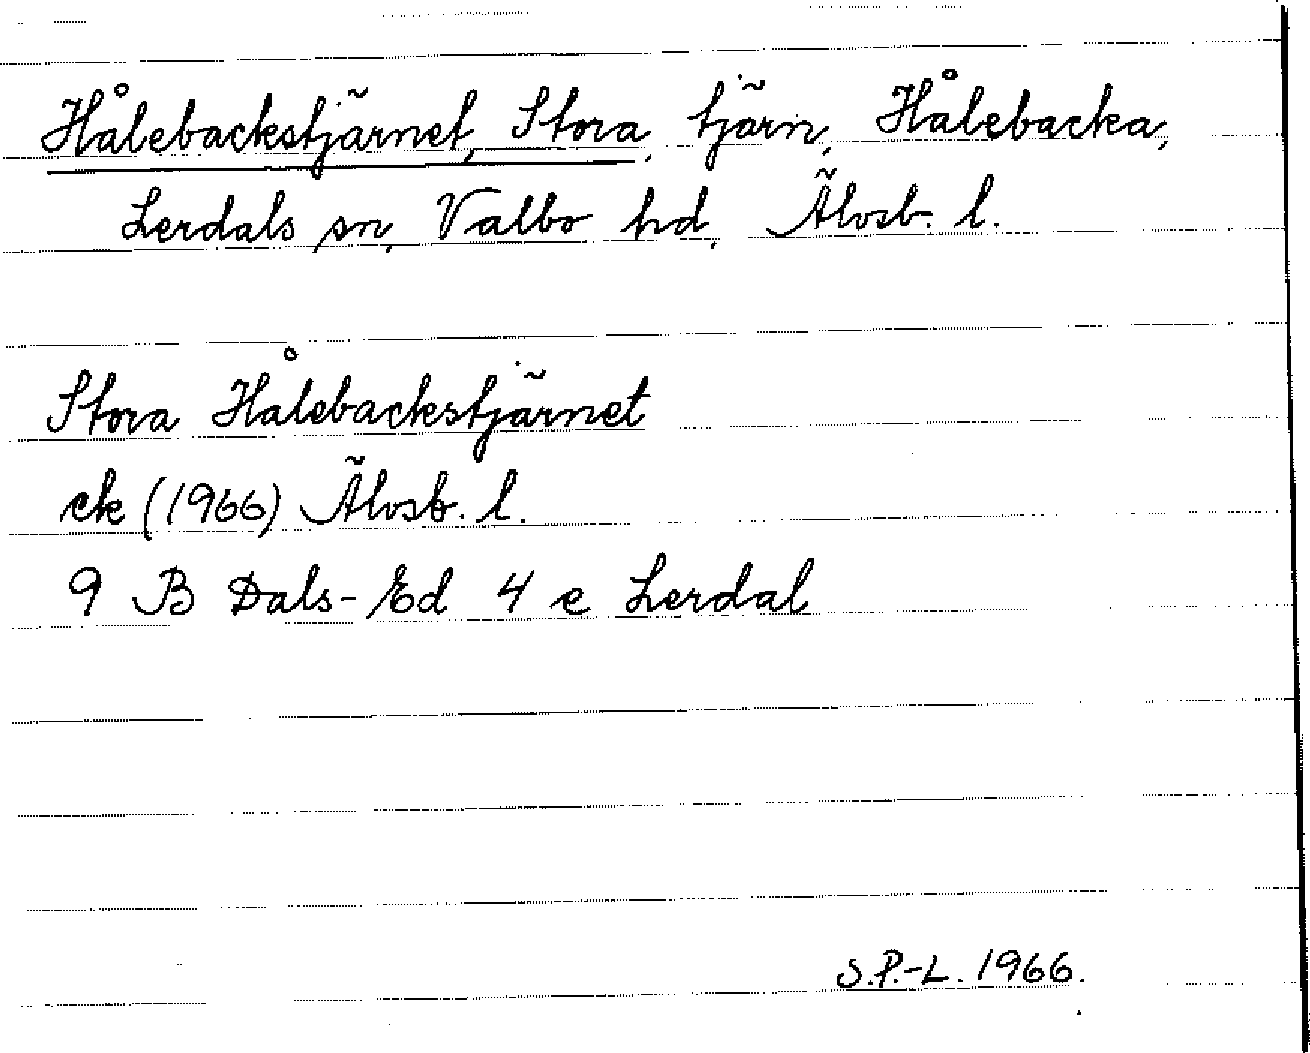 Hålebackstjärnet, Stora, tjärn, Hålebacka,
Lerdals sn, Valbo hd, Älvsb. l.
Stora Hålebackstjärnet
ek (1966) Älvsb. l.
9 B Dals-Ed 4 e Lerdal
S.P.-L. 1966.